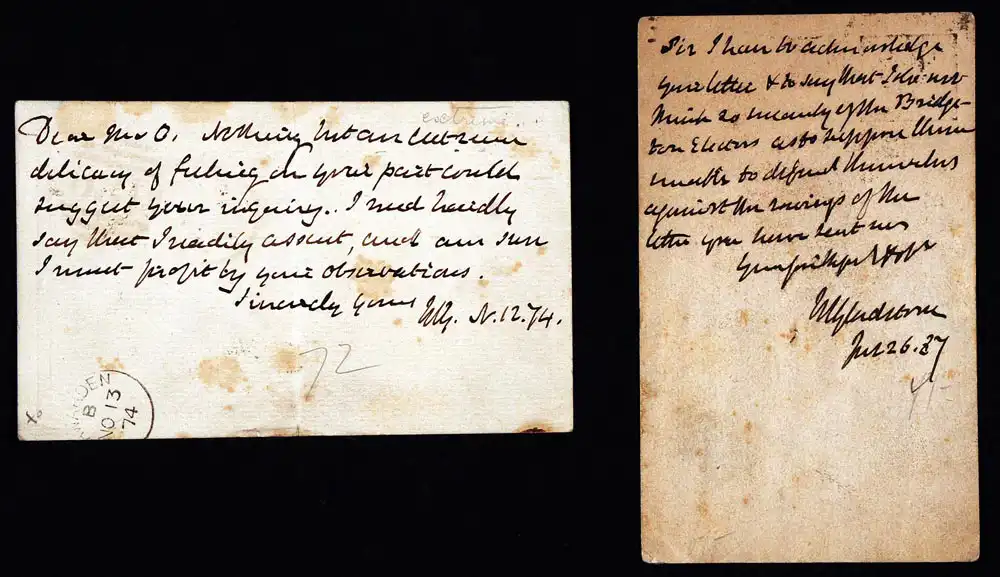 Dear Mr O. Nothing but an extreme
extreme...
delicacy of feeling on your part could
suggest your inquiry. I need hardly
say that I readily assent, and am sure
I must profit by your observations.
Sincerely yours
WG. N.12.74.
72
HAWARDEN
B
NO 13
74
x
Sir I have to acknowledge
your letter & to say that I do not
think so meanly of the Bridge-
ton Electors as to suppose them
unable to defend themselves
against the ravings of the
letter you have sent me
Your faithful &
WGladstone
26.87